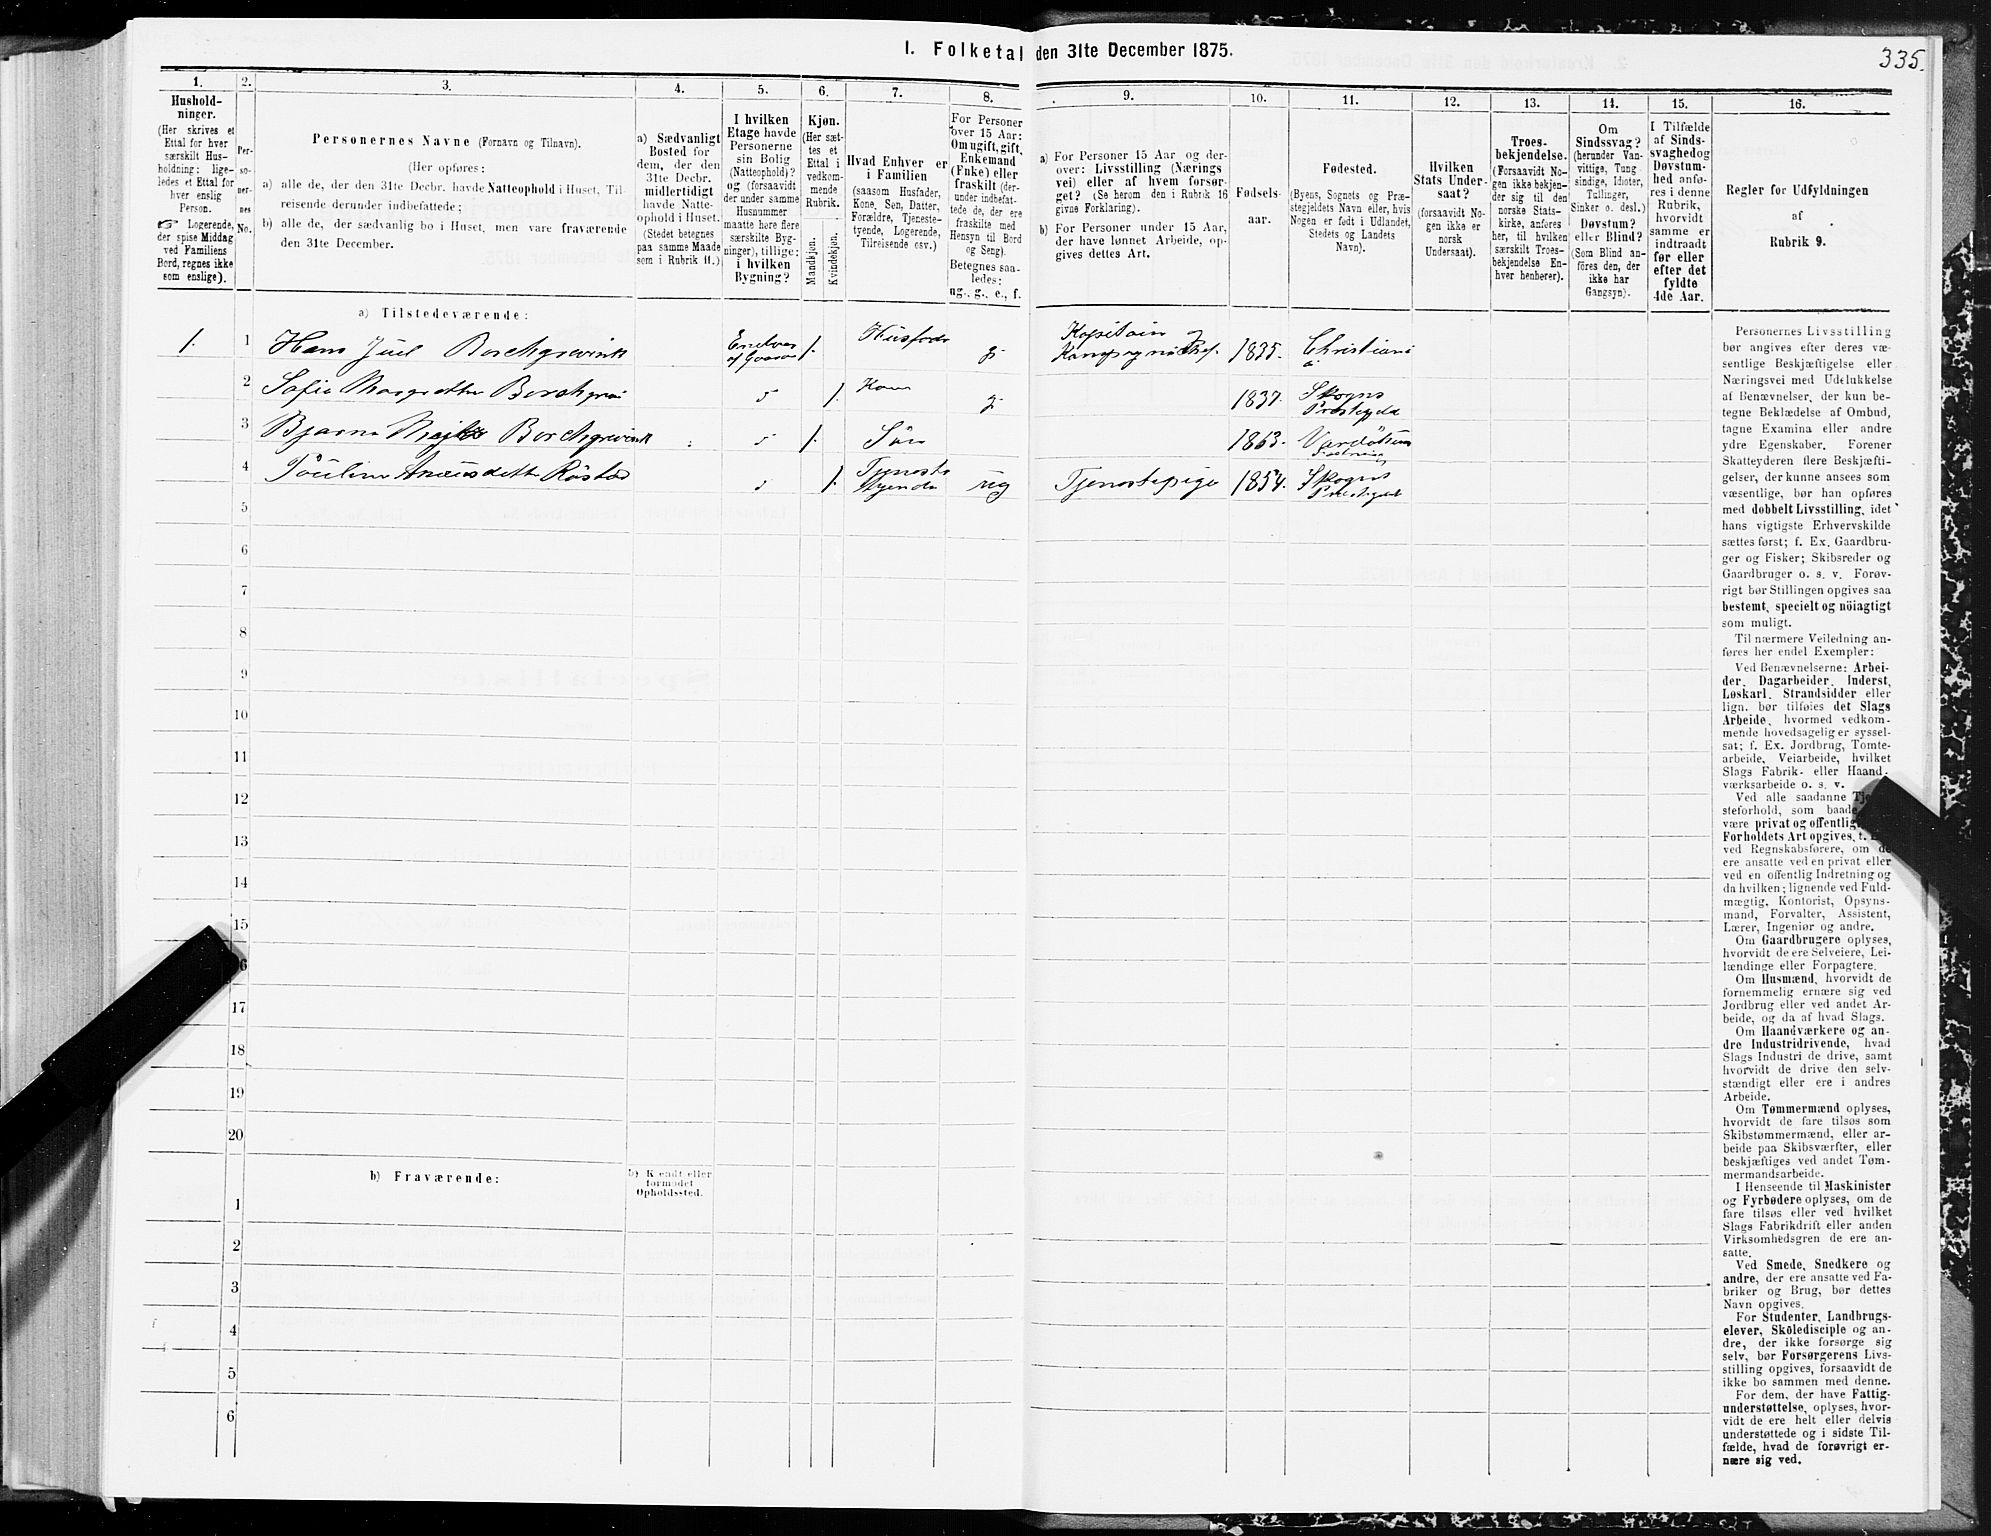 335.
I. Folketal den 31te December 1875.
1.
2.
3.
4.
5.
6.
7.
8.
9.
10.
11.
12.
13.
14.
15.
16.
Hushold-
ninger.
(Her skrives et
Ettal for hver
særskilt Hus-
holdning; lige-
ledes et Ettal for
hver enslig
Person.
☞ Logerende,
der spise Middag
ved Familiens
Bord, regnes ikke
som enslige).
Per-
so-
ner-
nes
No.
Personernes Navne (Fornavn og Tilnavn).
(Her opføres:
a) alle de, der den 31te Decbr. havde Natteophold i Huset, Til-
reisende derunder indbefattede;
b) alle de, der sædvanlig bo i Huset, men vare fraværende
den 31te December.
a) Sædvanligt
Bosted for
dem, der den
31te Decbr.
midlertidigt
havde Natte-
ophold i Huset.
(Stedet betegnes
paa samme Maade
som i Rubrik 11.)
I hvilken
Etage havde
Personerne
sin Bolig
(Natteophold)?
og (forsaavidt
der under samme
Husnummer
maatte høre flere
særskilte Byg-
ninger), tillige:
i hvilken
Bygning?
Kjøn.
(Her sæt-
tes et
Ettal i
vedkom-
mende
Rubrik.
Mandkjøn.
Kvindekjøn.
Hvad Enhver er
i Familien
(saasom Husfader,
Kone, Søn, Datter,
Forældre, Tjeneste-
tyende, Logerende,
Tilreisende osv.)
For Personer
over 15 Aar:
Om ugift, gift,
Enkemand
(Enke) eller
fraskilt (der-
under indbefat-
tede de, der ere
fraskilte med
Hensyn til Bord
og Seng).
Betegnes saa-
ledes:
ug., g., e., f.
a) For Personer 15 Aar og der-
over: Livsstilling (Nærings
vei) eller af hvem forsør-
get? (Se herom den i Rubrik 16
givne Forklaring).
b) For Personer under 15 Aar,
der have lønnet Arbeide, op-
gives dettes Art.
Fødsels-
aar.
Fødested.
(Byens, Sognets og Præ-
stegjeldets Navn eller, hvis
Nogen er født i Udlandet,
Stedets og Landets
Navn).
Hvilken
Stats Under-
saat?
(forsaavidt No-
gen ikke er
norsk
Undersaat).
Troes-
bekjendelse.
(Forsaavidt No-
gen ikke bekjen-
der sig til den
norske Stats-
kirke, anføres
her, til hvilken
særskilt Troes-
bekjendelse En-
hver henhører).
Om
Sindssvag?
(herunder Van-
vittige, Tung
sindige, Idioter,
Tullinger,
Sinker o. desl.)
Døvstum?
eller Blind?
(Som Blind an-
føres den, der
ikke har
Gangsyn).
I Tilfælde
af Sinds-
svaghed og
Døvstum-
hed anfø-
res i denne
Rubrik,
hvorvidt
samme er
indtraadt
før eller
efter det
fyldte
4de Aar.
Regler for Udfyldningen
af
Rubrik 9.
a) Tilstedeværende:
1. 1 Hans Juel Borchgrevink 1. g. Kapitain og 1835. Christiani
a
2 Sofie Borchgrevi 1. Kone g. 1837. Skogns
3 Bjarne Borchgrevink 1. Søn 1863.
4 1. Tjeneste ug Tjenestepige 1854. Skogns
5
6
7
8
9
10
11
12
13
14
15
6
17
18
19
20
b) Fraværende:
b) K endt eller
formodet
Opholdssted.
1
2
3
4
5
6
Personernes Livsstilling
bør angives efter deres væ-
sentlige Beskjæftigelse eller
Næringsvei med Udelukkelse
af Benævnelser, der kun be-
tegne Beklædelse af Ombud,
tagne Examina eller andre
ydre Egenskaber. Forener
Skatteyderen flere Beskjæfti-
gelser, der kunne ansees som
væsentlige, bør han opføres
med dobbelt Livsstilling, idet
hans vigtigste Erhvervskilde
sættes først; f. Ex. Gaardbru-
ger og Fisker; Skibsreder og
Gaardbruger o. s. v. Forøv-
rigt bør Stillingen opgives saa
bestemt, specielt og nöiagtigt
som muligt.
Til nærmere Veiledning an-
føres her endel Exempler:
Ved Benævnelserne: Arbei-
der, Dagarbeider, Inderst,
Løskarl, Strandsidder eller
lign. bør tilføies det Slags
Arbeide, hvormed vedkom-
mende hovedsagelig er syssel-
sat; f. Ex. Jordbrug, Tomte-
arbeide, Veiarbeide, hvilket
Slags Fabrik- eller Haand-
værksarbeide o. s. v.
Ved alle saadanne
steforhold, som baade
være privat og offentlig
Forholdets Art opgives,
ved Regnskabsførere, om de
ere ansatte ved en privat eller
ved en offentlig Indretning og
da hvilken; lignende ved Fuld-
mægtig, Kontorist, Opsyns-
mand, Forvalter, Assistent,
Lærer, Ingeniør og andre.
Om Gaardbrugere oplyses,
hvorvidt de ere Selveiere, Lei-
lændinge eller Forpagtere.
Om Husmænd, hvorvidt de
fornemmelig ernære sig ved
Jordbrug eller ved andet Ar-
beide, og da af hvad Slags.
Om Haandværkere og an-
dre Industridrivende, hvad
Slags Industri de drive, samt
hvorvidt de drive den selv-
stændigt eller ere i andres
Arbeide.
Om Tømmermænd oplyses,
hvorvidt de fare tilsøs som
Skibstømmermænd, eller ar-
beide paa Skibsværfter, eller
beskjæftiges ved andet Tøm-
mermandsarbeide.
I Henseende til Maskinister
og Fyrbødere oplyses, om de
fare tilsøs eller ved hvilket
Slags Fabrikdrift eller anden
Virksomhedsgren de ere an-
satte.
Ved Smede, Snedkere og
andre, der ere ansatte ved Fa-
briker og Brug, bør dettes
Navn opgives.
For Studenter, Landbrugs-
elever, Skôledisciple og an-
dre, der ikke forsørge sig
selv, bør Forsørgerens Livs-
stilling opgives, forsaavidt de
ikke bo sammen med denne.
For dem, der have Fattig-
understøttelse, oplyses, hvor-
vidt de ere helt eller delvis
understøttede og i sidste Til-
fælde, hvad de forøvrigt er-
nære sig ved.